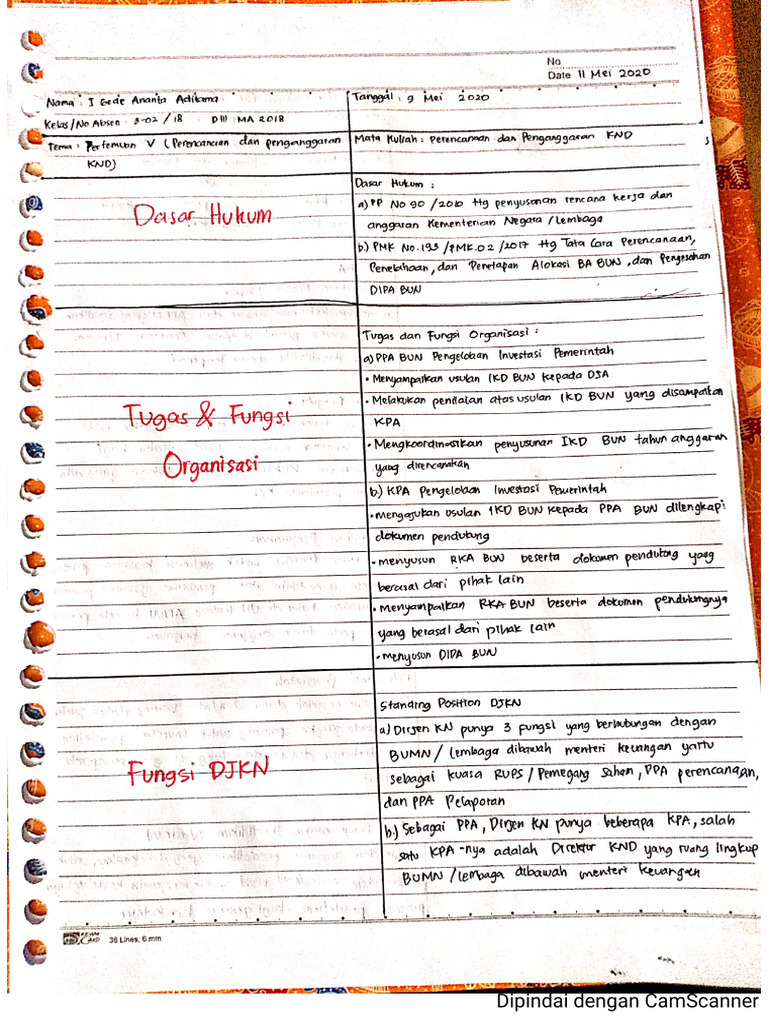 No
Date 11 Mei 2020
Nama : I Gede Ananta Aditama
Tanggal : 9 Mei 2020
Kelas/No Absen : 3-02 / 18 DIII MA 2018
Tema : Pertemuan V ( Perencanaan dan penganggaran
KND)
Mata Kuliah : Perencanaan dan Penganggaran KND
Dasar Hukum
Dasar Hukum :
a) PP No 90 /2010 ttg penyusunan rencana kerja dan
anggaran Kementerian Negara /Lembaga
b.) PMK No. 193 /PMK.02 /2017 ttg Tata Cara Perencanaan,
Penelahaan, dan Penetapan Alokasi BA BUN, dan Pengesahan
DIPA BUN
Tugas & Fungsi
Organisasi
Tugas dan Fungsi Organisasi :
a) PPA BUN Pengelolaan Investasi Pemerintah
• Menyampaikan usulan IKD BUN kepada DJA
• Melakukan penilaian atas usulan IKD BUN yang disampaikan
KPA
• Mengkoordinasikan penyusunan IKD BUN tahun anggaran
yang direncanakan
b.) KPA Pengelolaan Investasi Pemerintah
• mengajukan usulan IKD BUN kepada PPA BUN dilengkapi
dokumen pendukung
• menyusun RKA BUN beserta dokumen pendukung yang
berasal dari pihak lain
• Menyampaikan RKA BUN beserta dokumen pendukungnya
yang berasal dari pihak lain
• menyusun DIPA BUN
Fungsi DJKN
Standing Position DJKN
a) Dirjen KN punya 3 fungsi yang berhubungan dengan
BUMN/ Lembaga dibawah menteri keuangan yaitu
sebagai kuasa RUPS / Pemegang Saham, PPA perencanaan,
dan PPA Pelaporan
b.) Sebagai PPA, Dirjen KN punya beberapa KPA, salah
satu KPA-nya adalah Direktur KND yang ruang lingkup
BUMN /lembaga dibawah menteri keuangan
36 Lines, 6 mm
Dipindai dengan CamScanner